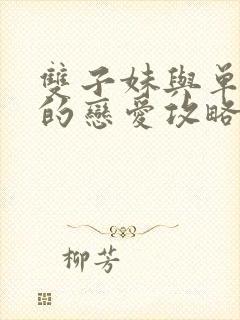 雙子妹與單
的戀愛攻略
柳芳